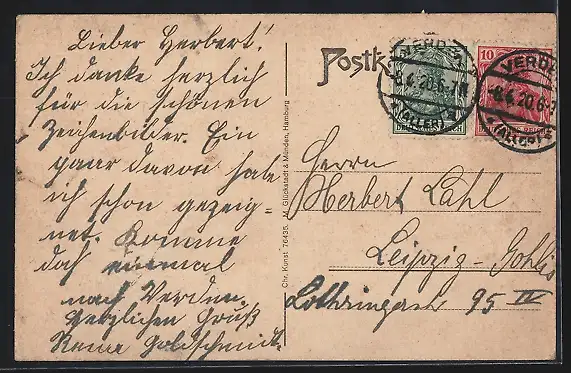 Lieber Herbert!
Ich danke herzlich
für die schönen
Zeichenbilder. Ein
paar davon habe
ich schon gezeig=
net. Komme
doch einmal
nach Verden.
Herzlichen Gruß
Goldschmidt.
Chr. Kunst 76435. M. Glückstadt & Münden, Hamburg
Postk
VERDEN
-8.4.20.6-7N
(ALLER)
10
VERDEN
-8.4.20.6-7
(ALLER)
Herrn
Herbert Lahl
Leipzig-Gohlis
Lothringerstr. 95 IV